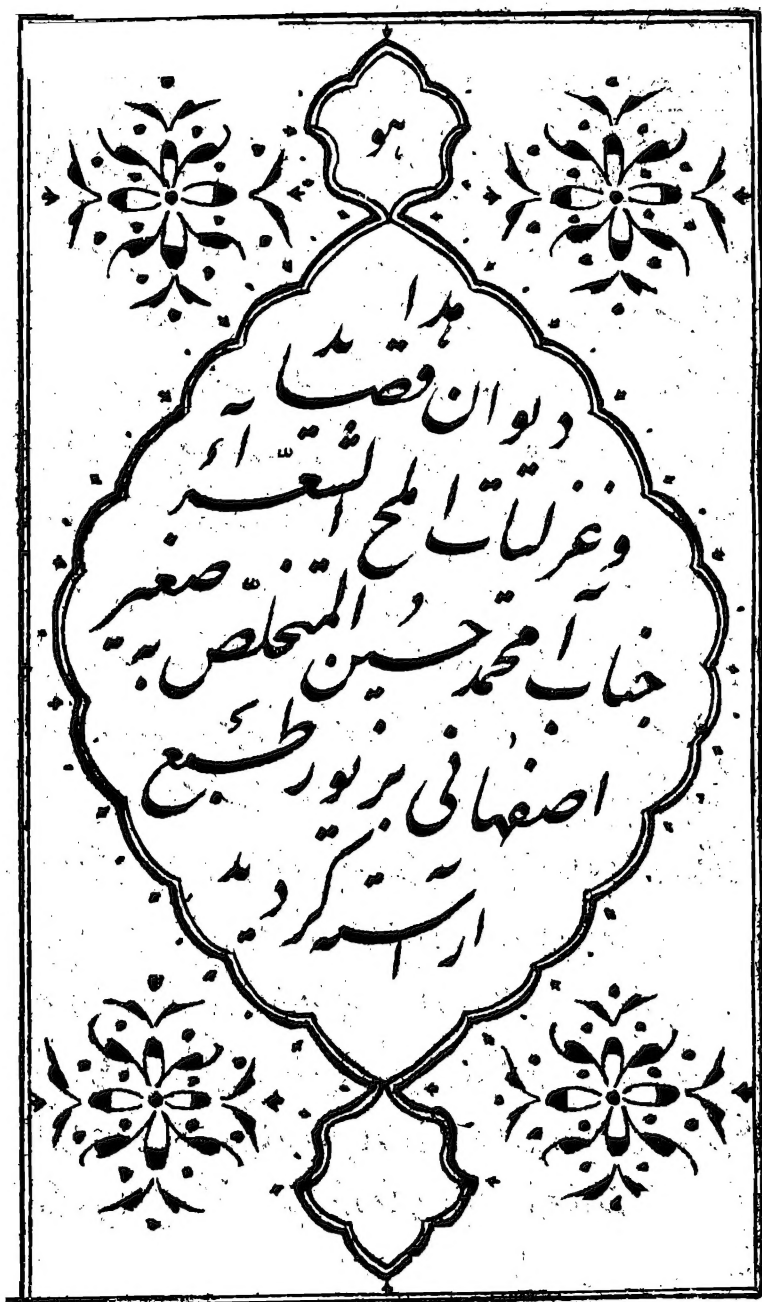 هو
هذا
دیوان قصاید
و غزلیات املح الشعرآء
جناب آقا محمد حسین المتخلّص به صغیر
اصفهانی بزیور طبع
آراسته گردید